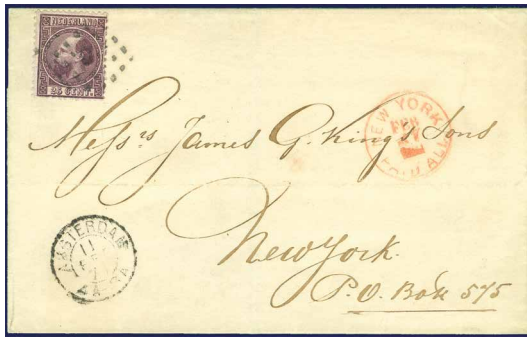 NEDERLAND
25 CENT.
NEW YORK
PAID ALL
Messrs James G. King's Sons
AMSTERDAM
11
New York.
P.O. Box 575